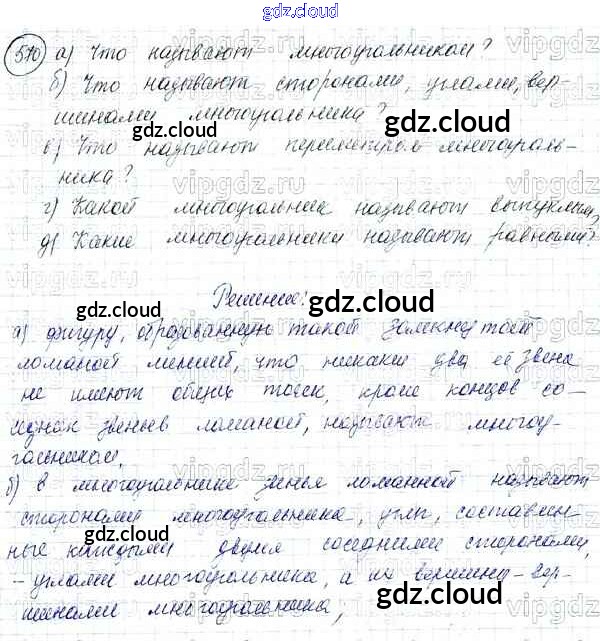 gdz.cloud
570 а) Что называют многоугольником?
б) Что называют сторонами, углами, вер-
шинами многоугольника?
в) Что называют периметром многоуголь-
ника?
г) Какой многоугольник называют выпуклым?
д) Какие многоугольники называют равными?
Решение:
а) фигуру, образованную такой замкнутой
ломаной линией, что никакие два её звена
не имеют общих точек, кроме концов со-
седних звеньев ломаной, называют многоу-
гольником.
б) в многоугольнике звенья ломанной называют
сторонами многоугольника, углы, составлен-
ные каждыми двумя соседними сторонами,
- углами многоугольника, а их вершины - вер-
шинами многоугольника;